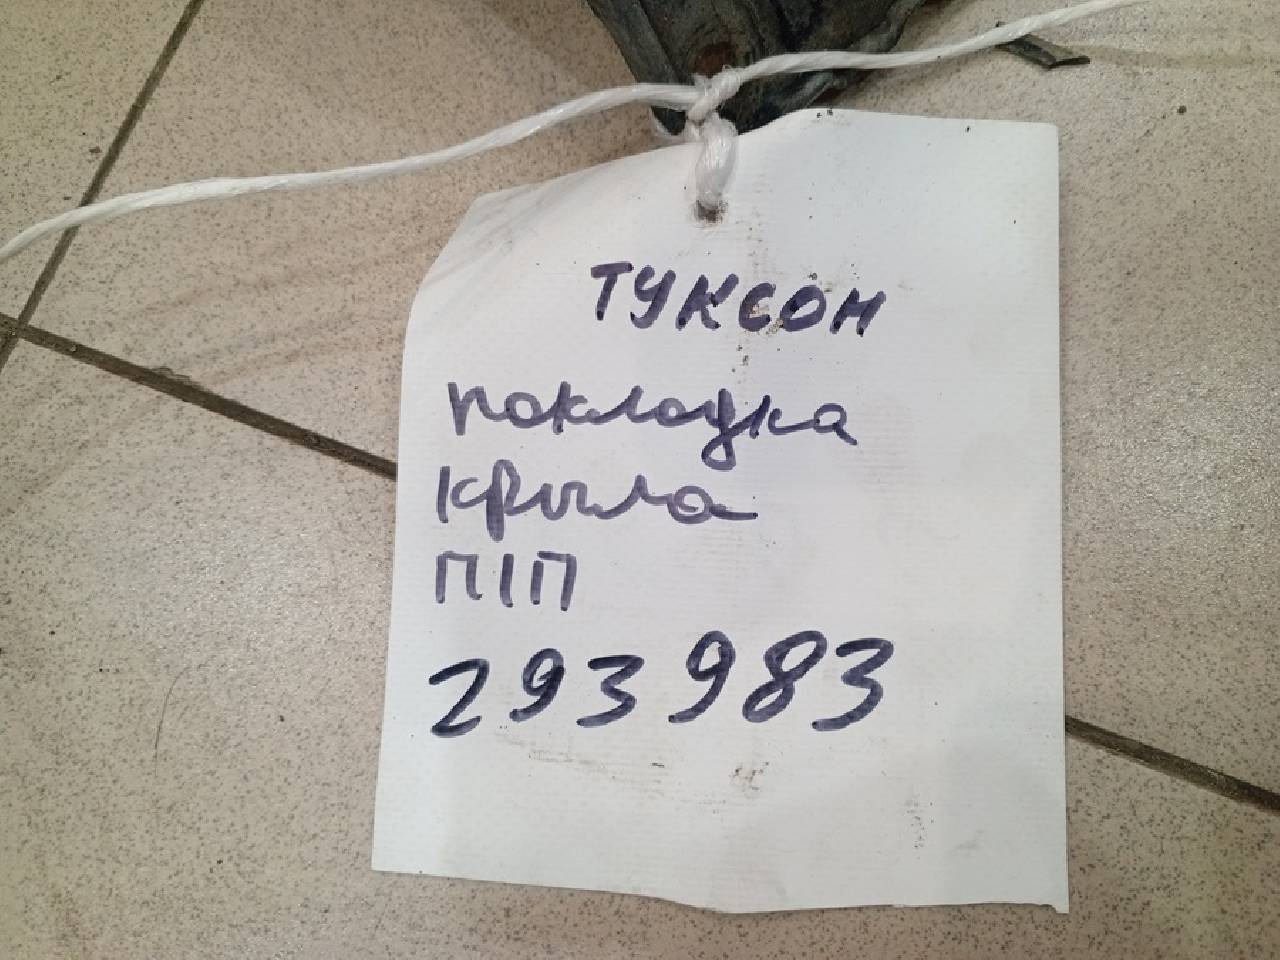 ТУКСОН
покладка
крыла
П|П
293983